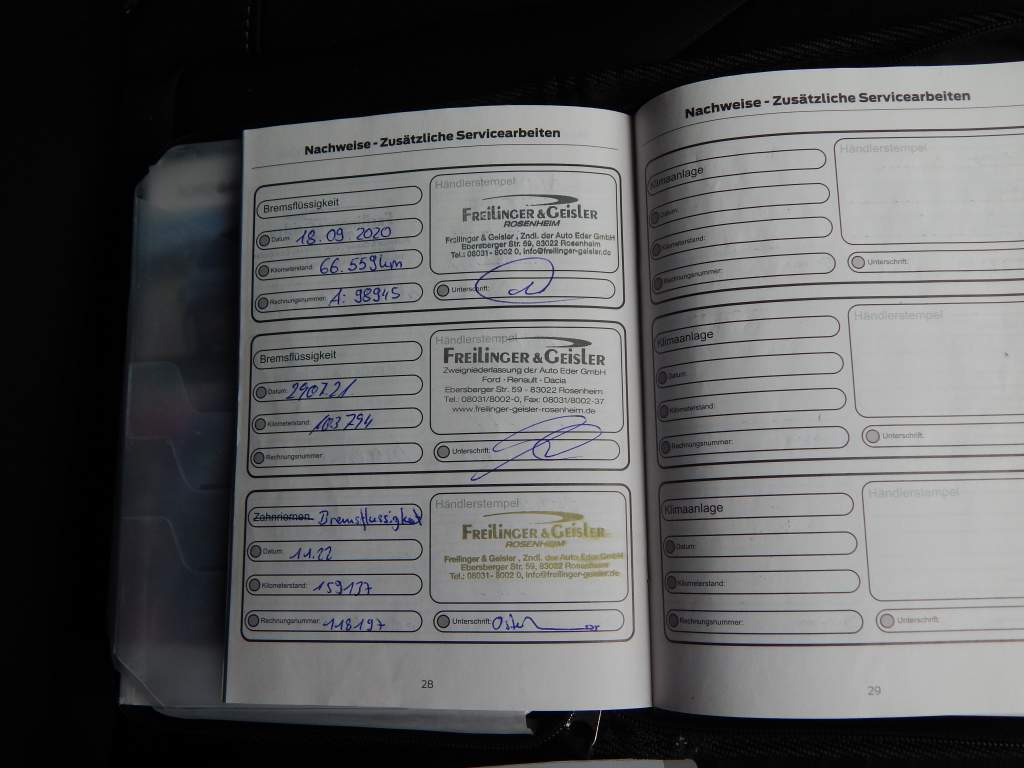 Nachweise - Zusätzliche Servicearbeiten
Bremsflüssigkeit
Datum: 18.09.2020
Kilometerstand: 66.559km
Rechnungsnummer: A: 98945
Händlerstempel
FREILINGER & GEISLER
ROSENHEIM
Freilinger & Geisler , Zndl. der Auto Eder GmbH
Ebersberger Str. 59, 83022 Rosenheim
Tel.: 08031- 8002 0, info@freilinger-geisler.de
Unterschrift:
Bremsflüssigkeit
Datum: 290721
Kilometerstand: 103794
Rechnungsnummer:
Händlerstempel
FREILINGER & GEISLER
Zweigniederlassung der Auto Eder GmbH
Ford · Renault · Dacia
Ebersberger Str. 59 - 83022 Rosenheim
Tel.: 08031/8002-0, Fax: 08031/8002-37
www.freilinger-geisler-rosenheim.de
Unterschrift:
Zahnriemen Bremsflüssigkeit
Datum: 11.22
Kilometerstand: 159137
Rechnungsnummer: 118197
Händlerstempel
FREILINGER & GEISLER
ROSENHEIM
Freilinger & Geisler , Zndl. der Auto Eder GmbH
Ebersberger Str. 59, 83022 Rosenheim
Tel.: 08031- 8002 0, info@freilinger-geisler.de
Unterschrift:
28
Nachweise - Zusätzliche Servicearbeiten
Klimaanlage
Datum:
Kilometerstand:
Rechnungsnummer:
Händlerstempel
Unterschrift:
Klimaanlage
Datum:
Kilometerstand:
Rechnungsnummer:
Händlerstempel
Unterschrift:
Klimaanlage
Datum:
Kilometerstand:
Rechnungsnummer:
Händlerstempel
Unterschrift:
29